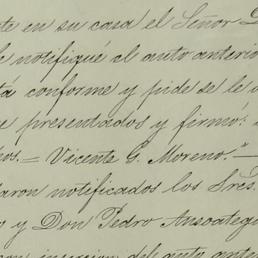 te en su casa el Señor D
le notifiqué el auto anterio
tá conforme y pide se le d
e presentados y firmó:
hos.= Vicente G. Moreno."—
daron notificados los Sres.
o y Don Pedro Ansoategui
con insercion del auto ante